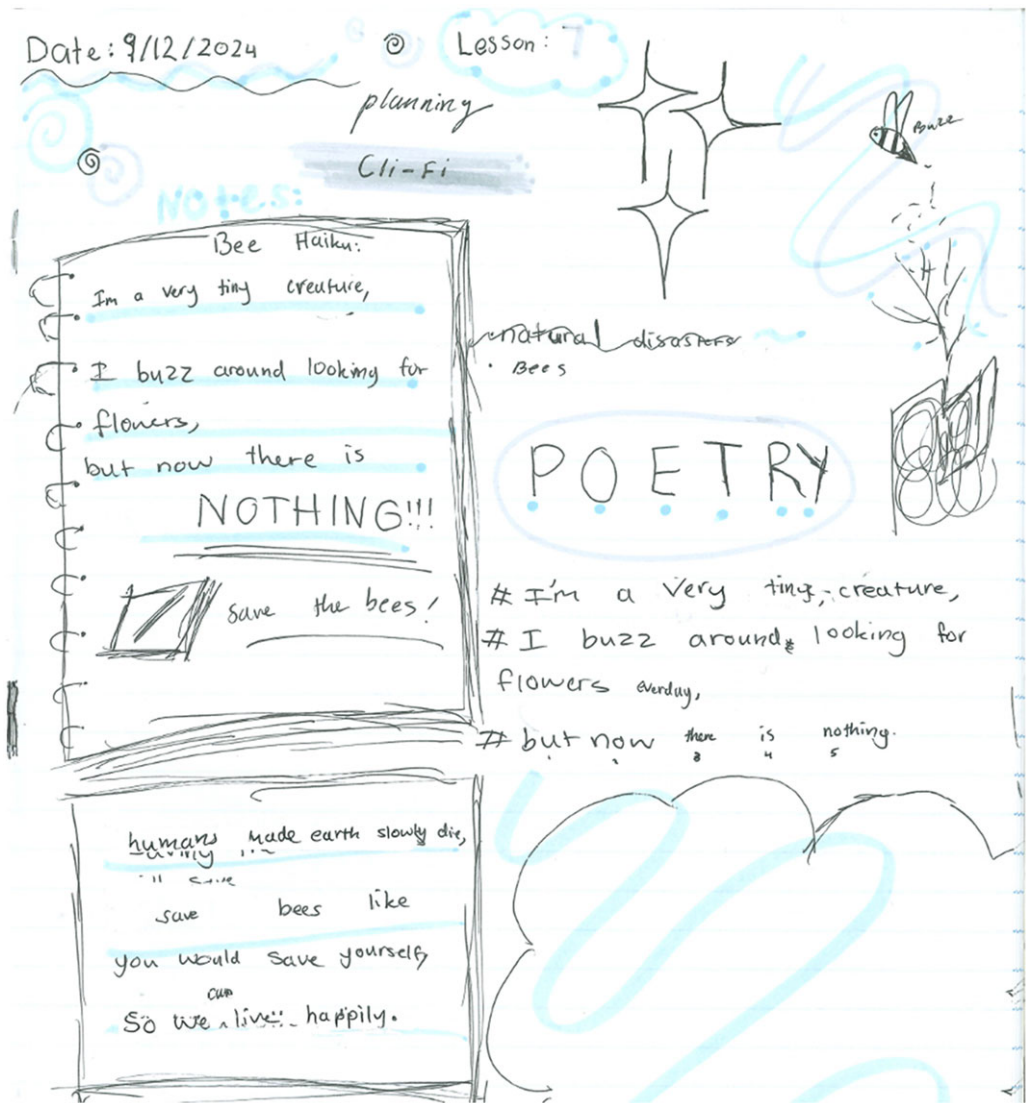 Date: 9/12/2024
Lesson: 7
planning
Cli-Fi
Notes:
Buzz
Bee Haiku:
Im a very tiny creature,
I buzz around looking for
flowers,
but now there is
NOTHING!!!
save the bees!
natural disasters
· Bees
POETRY
# I'm a very tiny, creature,
# I buzz around looking for
flowers everday,
# but now there is nothing.
3 4 5
humans made earth slowly die,
save bees like
you would save yourself,
can
So we live happily.